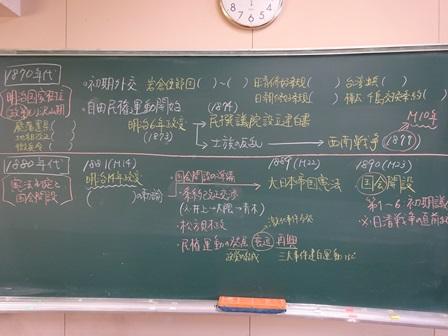 1870年代
・初期外交 岩倉使節団( )~( ) 日清修好条規( ) 台湾出兵( )
日朝修好条規( ) 樺太・千島交換条約( )
明治国家確立
廃藩置県( )
地租改正( )
徴兵令( )
・自由民権運動開始 (1874)
明治6年政変 → 民撰議院設立建白書
(1873)
→ 士族の反乱 → 西南戦争(1877)
M10年
1880年代
憲法制定と
国会開設
1881(M14)
明治14年政変
( )の勅諭
・国会開設の準備
・条約改正交渉
(井上→大隈→青木)
・松方財政
・民権運動の 激化 再興
三大事件建白運動
1889(M22)
大日本帝国憲法
1890(M23)
国会開設
第1~6 初期議
※日清戦争の直前